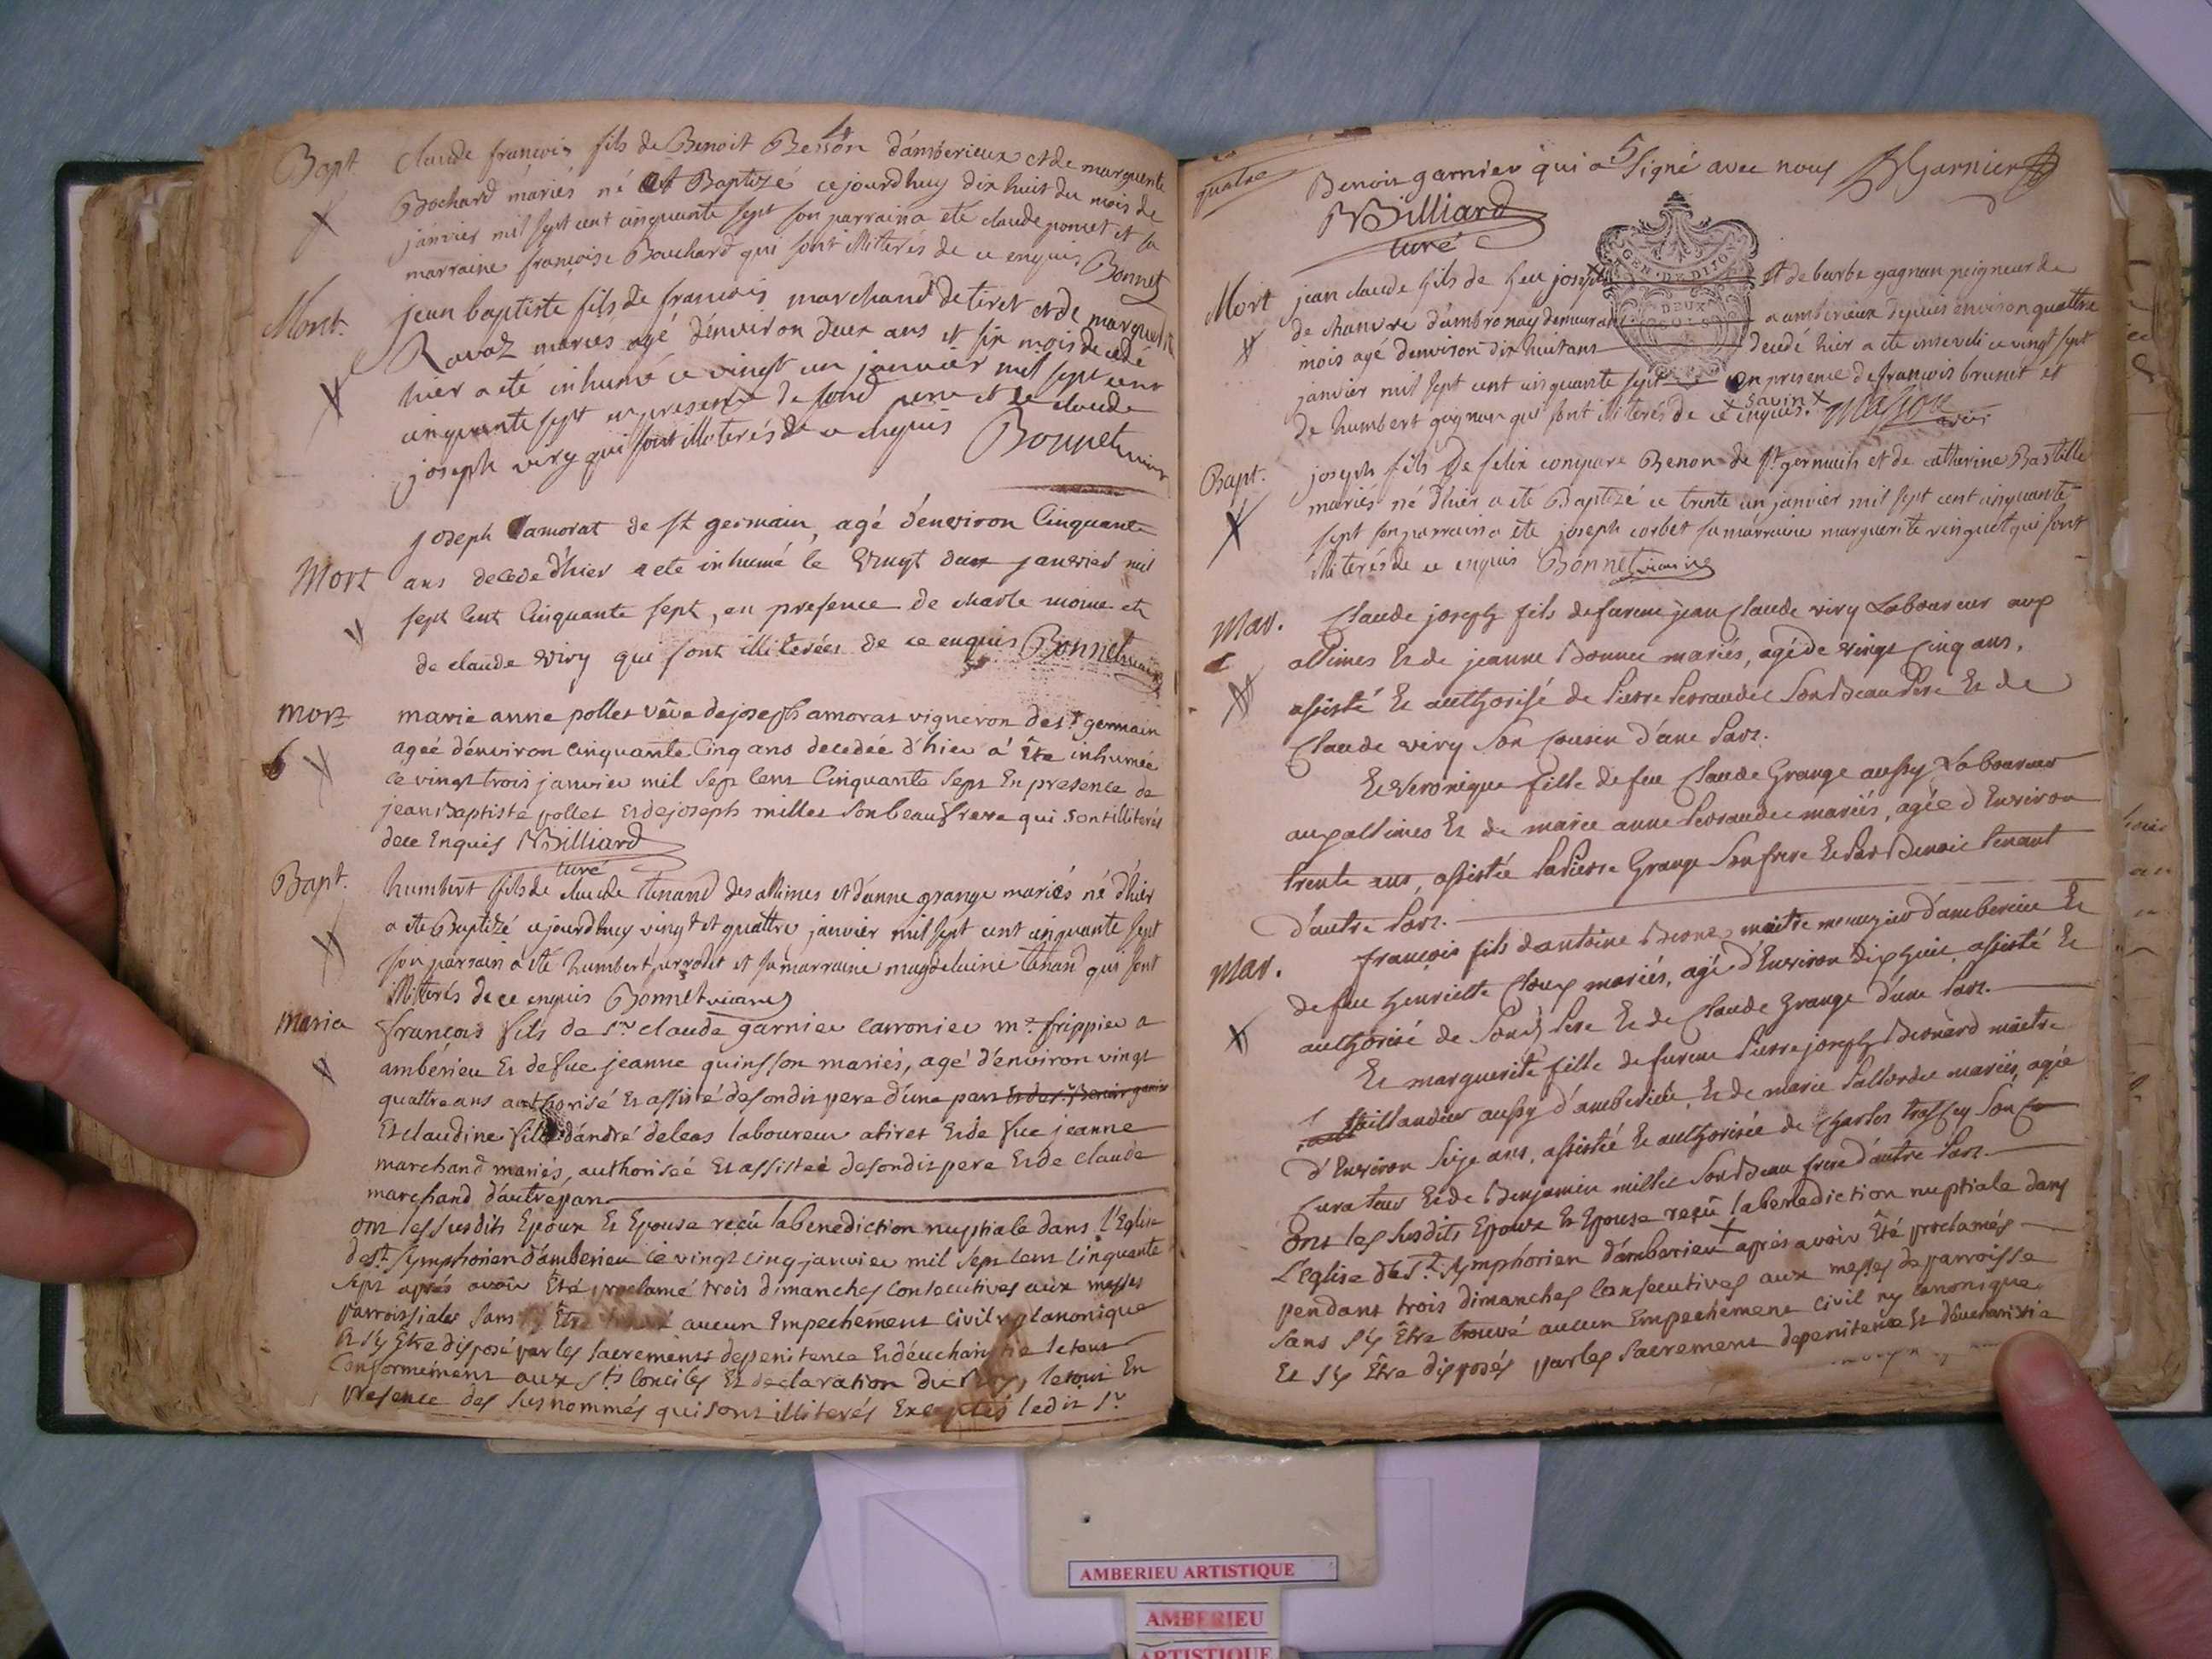 4
Bapt Claude francois fils de Benoit Besson d'amberieux et de marguerite
Bochard mariés né et Baptizé cejourdhuy dix huit du mois de
janvier mil sept cent cinquante sept son parrain a été claude poncet et sa
marraine françoise Bouchard qui sont illiterés de ce enquis Bonnet
Mort. jean baptiste fils de francois marchand de tiret et de marguerite
Ravaz mariés agé d'environ deux ans et six mois decedé
hier a eté inhumé ce vingt un janvier mil sept cent
cinquante sept en presence de sond pere et de claude
joseph viry qui sont illiterés de ce enquis Bonnet vicaire
joseph amorat de st germain, agé d'environ Cinquante
Mort ans decedé d'hier a eté inhumé le vingt deux janvier mil
sept Cent Cinquante sept, en presence de charle moine et
de claude viry qui sont illiterées de ce enquis Bonnet vicaire
mort marie anne pollet vêve de joseph amorat vigneron de st germain
6 ageé d'environ Cinquante Cinq ans decedée d'hier a été inhumée
ce vingt trois janvier mil sept Cent Cinquante sept En presence de
jean Baptiste pollet et de joseph millet son beau frere qui sont illiterés
de ce Enquis Billiard
curé
Bapt. humbert fils de claude tenand des allimes et d'anne grange mariés né d'hier
a ete Baptizé cejourdhuy vingt et quattre janvier mil sept cent cinquante sept
son parrain a eté humbert perrodet et sa marraine magdelaine tenand qui sont
illiterés de ce enquis Bonnet vicaire
maria francois fils de sr claude garnier m.e frippier a
ambérieu Et de fue jeanne quinsson mariés, agé d'environ vingt
quattre ans authorisé Et assisté de sondit pere d'une part
Et claudine fille d'andré deleas laboureur a tiret Et de fue jeanne
marchand mariés, authoriseé Et assisteé de sondit pere Et de claude
marchand d'autre part
ont les susdits Epoux Et Epouse reçu la benediction nuptiale dans l'Eglise
de st. symphorien d'amberieu ce vingt cinq janvier mil sept cent cinquante
sept aprés avoir Eté proclamé trois dimanches consecutives aux messes
parroissiales sans Etre aucun Empechement civil ny canonique
Et s'y Etre disposé par les sacrements de penitence Et d'eucharistie le tout
conformement aux sts conciles Et declaration du Roy, le tout En
presence des susnommés qui sont illiterés Exceptés ledit sr
5
quatre Benoit garnier qui a signé avec nous BGarnier
Billiard
curé
GEN. DE DIJON
DEUX
SOLS
Mort jean claude fils de feu joseph et de barbe gagnan peigneur de
de chanvre d'ambronay demeurant a amberieux depuis environ quattre
mois agé d'environ dix huit ans decedé hier a eté inseveli ce vingt sept
janvier mil sept cent cinquante sept en presence de francois brunet et
savin
de humbert gagnan qui sont illiterés de ce enquis. Masson vicair
Bapt. joseph fils de felix compare Benon de st germain et de catherine Bastille
mariés né d'hier a eté Baptizé ce trente un janvier mil sept cent cinquante
sept son parrain a eté joseph corbet sa marraine marguerite vinguet qui sont
illiterés de ce enquis Bonnet vicaire
Mar. Claude joseph fils de fureur jean Claude viry Laboureur aux
allimes Et de jeanne Bonnet mariés, agé de vingt Cinq ans,
assisté Et authorisé de Pierre Perraudet son Beau Pere Et de
Claude viry son Cousin d'une Part.
Et Veronique fille de feu Claude Grange aussy Laboureur
aux allimes Et de marie anne Perraudet mariés, agée d'Environ
trente ans, assistée Pierre Grange son frere Et Benoit tenant
d'autre Part.
Mar. francois fils d'antoine maitre menuzier d'amberieu Et
de fue henriette Choux mariés, agé d'Environ dix huit, assisté Et
authorisé de Sond. Pere Et de Claude Grange d'une Part.
Et marguerite fille de Pierre joseph Bernard maitre
taillandier aussy d'amberieu, Et de marie mariés, agée
d'Environ Seize ans, assistée Et authorisée de Charles son
Curateur Et de Benjamin millet son Beau frere d'autre Part.
Ont les susdits Epoux Et Epouse reçû la benediction nuptiale dans
L'Eglise de st. symphorien d'amberieu aprés avoir Eté proclamés
pendant trois dimanches consecutives aux messes de parroisse
sans s'y Être trouvé aucun Empechement civil ny canonique
Et s'y Être disposés par les sacrement de penitence Et d'eucharistie
AMBERIEU ARTISTIQUE
AMBERIEU
ARTISTIQUE